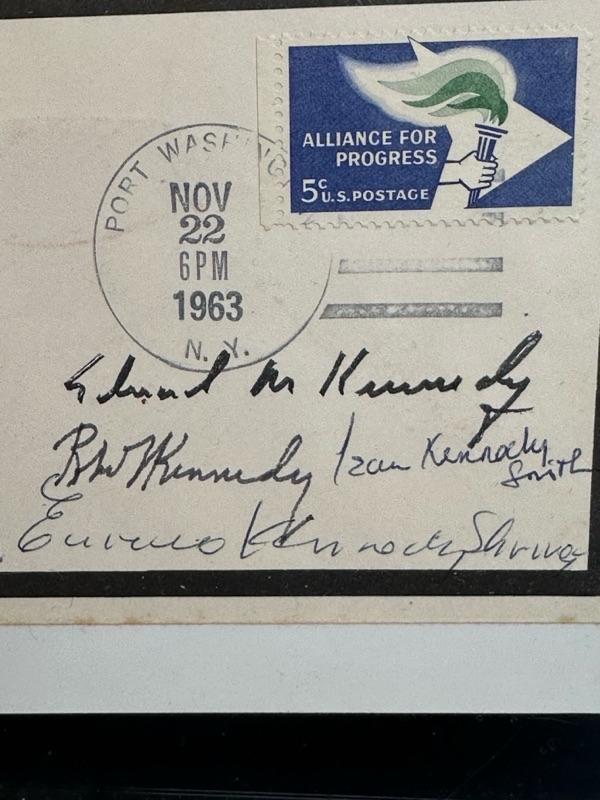 ALLIANCE FOR
PROGRESS
5c U.S. POSTAGE
PORT WASHING
NOV
22
6 PM
1963
N. Y.
Edward M Kennedy
Kennedy
Jean Kennedy
Smith
Eunice Kennedy Shriver